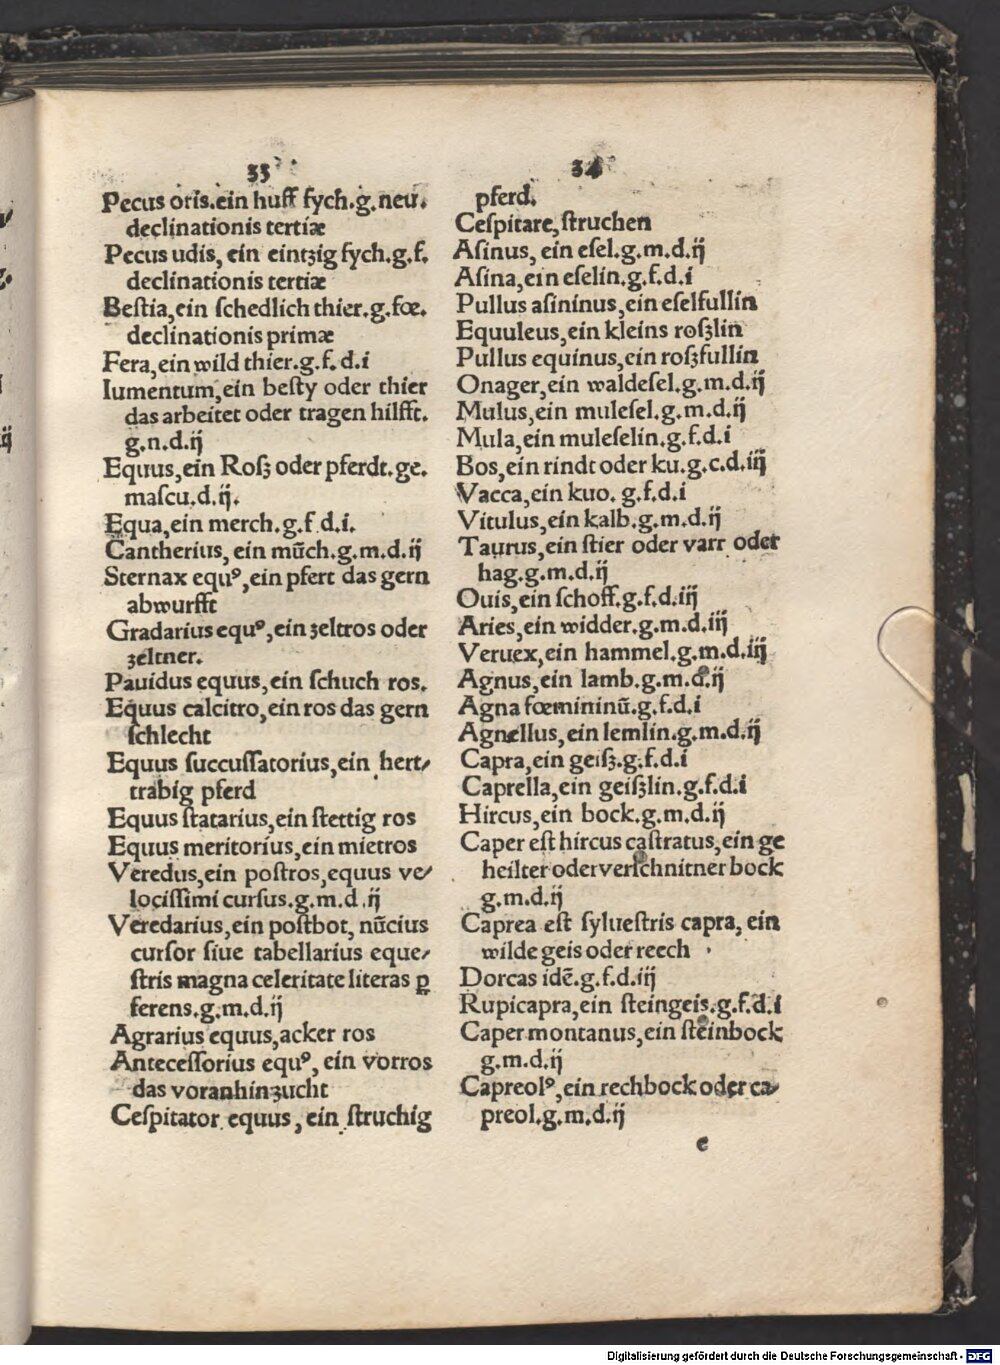 33
Pecus oris.ein huff fych.g.neu.
declinationis tertiæ
Pecus udis, ein eintzig fych.g.f.
declinationis tertiæ
Bestia,ein schedlich thier.g.fœ.
declinationis primæ
Fera,ein wild thier.g.f.d.i
Iumentum,ein besty oder thier
das arbeitet oder tragen hilfft.
g.n.d.ij
Equus,ein Roſz oder pferdt.ge.
mascu.d.ij.
Equa,ein merch.g.f d.i.
Cantherius, ein mūch.g.m.d.ij
Sternax equꝰ,ein pfert das gern
abwurfft
Gradarius equꝰ,ein zeltros oder
zeltner.
Pauidus equus,ein schuch ros.
Equus calcitro,ein ros das gern
schlecht
Equus succussatorius,ein hert/
trabig pferd
Equus statarius,ein stettig ros
Equus meritorius,ein mietros
Veredus,ein postros,equus ve/
locissimi cursus.g.m.d.ij
Veredarius,ein postbot, nūcius
cursor siue tabellarius eque/
stris magna celeritate literas ꝑ
ferens.g.m.d.ij
Agrarius equus,acker ros
Antecessorius equꝰ, ein vorros
das voranhinzucht
Cespitator equus, ein struchig
34
pferd.
Cespitare,struchen
Asinus, ein esel.g.m.d.ij
Asina,ein eselin.g.f.d.i
Pullus asininus,ein eselfullin
Equuleus,ein kleins roſzlin
Pullus equinus,ein roſzfullin
Onager,ein waldesel.g.m.d.ij
Mulus,ein mulesel.g.m.d.ij
Mula,ein muleselin.g.f.d.i
Bos,ein rindt oder ku.g.c.d.iij
Vacca,ein kuo. g.f.d.i
Vitulus,ein kalb.g.m.d.ij
Taurus,ein stier oder varr oder
hag.g.m.d.ij
Ouis,ein schoff.g.f.d.iij
Aries,ein widder.g.m.d.iij
Veruex,ein hammel.g.m.d.iij
Agnus,ein lamb.g.m.d.ij
Agna fœmininū.g.f.d.i
Agnellus,ein lemlin.g.m.d.ij
Capra,ein geiſz.g.f.d.i
Caprella,ein geiſzlin.g.f.d.i
Hircus,ein bock.g.m.d.ij
Caper est hircus castratus,ein ge
heilter oder verschnitner bock
g.m.d.ij
Caprea est syluestris capra, ein
wilde geis oder reech
Dorcas idē.g.f.d.iij
Rupicapra,ein steingeis.g.f.d.i
Caper montanus,ein steinbock
g.m.d.ij
Capreolꝰ,ein rechbock oder ca/
preol.g.m.d.ij
e
Digitalisierung gefördert durch die Deutsche Forschungsgemeinschaft - DFG